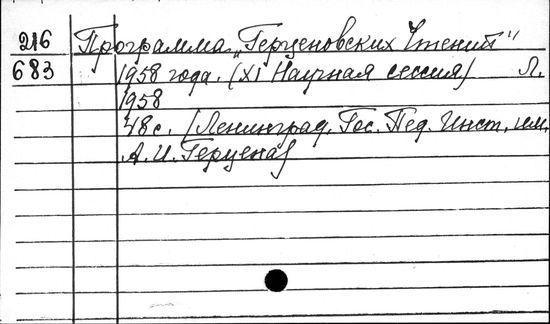 216 Программа „Герценовских Чтений"
683 1958 года. (XI Научная сессия) Л.
1958
48с. (Ленинград. Гос. Пед. Инст. им.
А.И. Герцена)